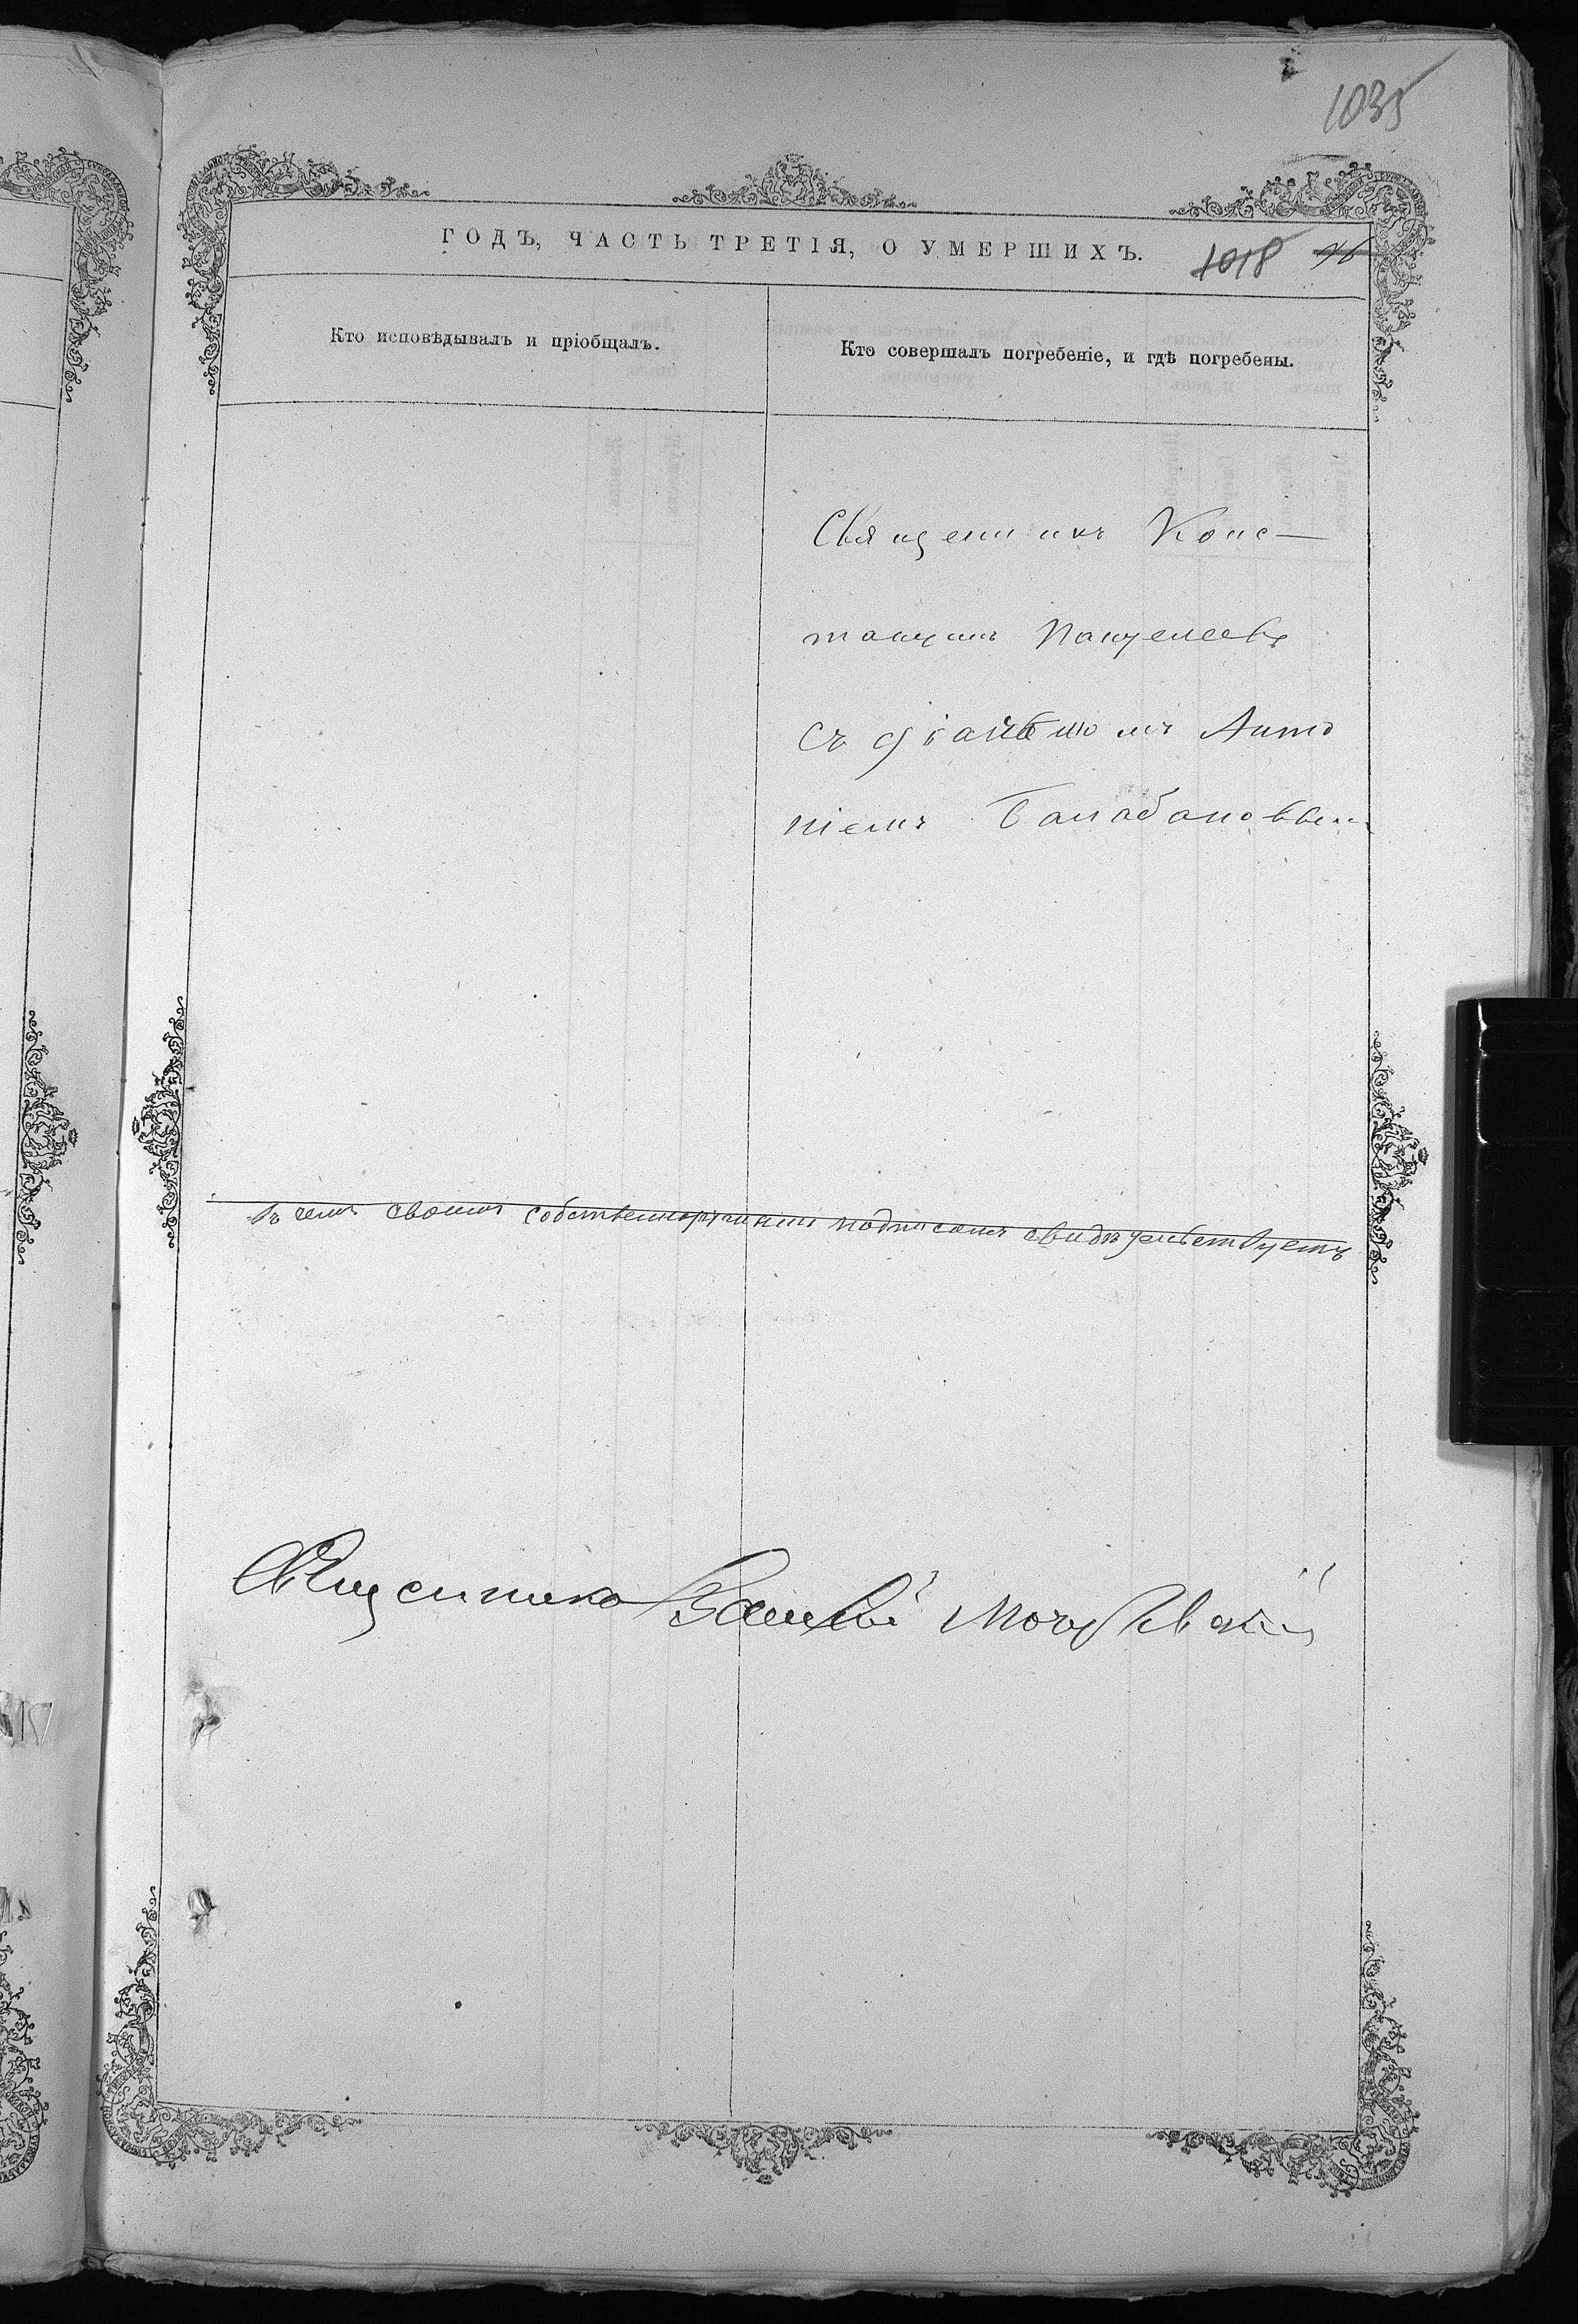 1035
ГОДЪ, ЧАСТЬ ТРЕТІЯ, О УМЕРШИХЪ.
1018 96
Кто исповѣдывалъ и пріобщалъ.
Кто совершалъ погребеніе, и гдѣ погребены.
Священникъ Конс-
тантинъ Пантелеевъ
съ діакономъ Анто
ніемъ Балабановым
въ чемъ своимъ собственноручнымъ подписомъ свидѣтельствуетъ
Священникъ